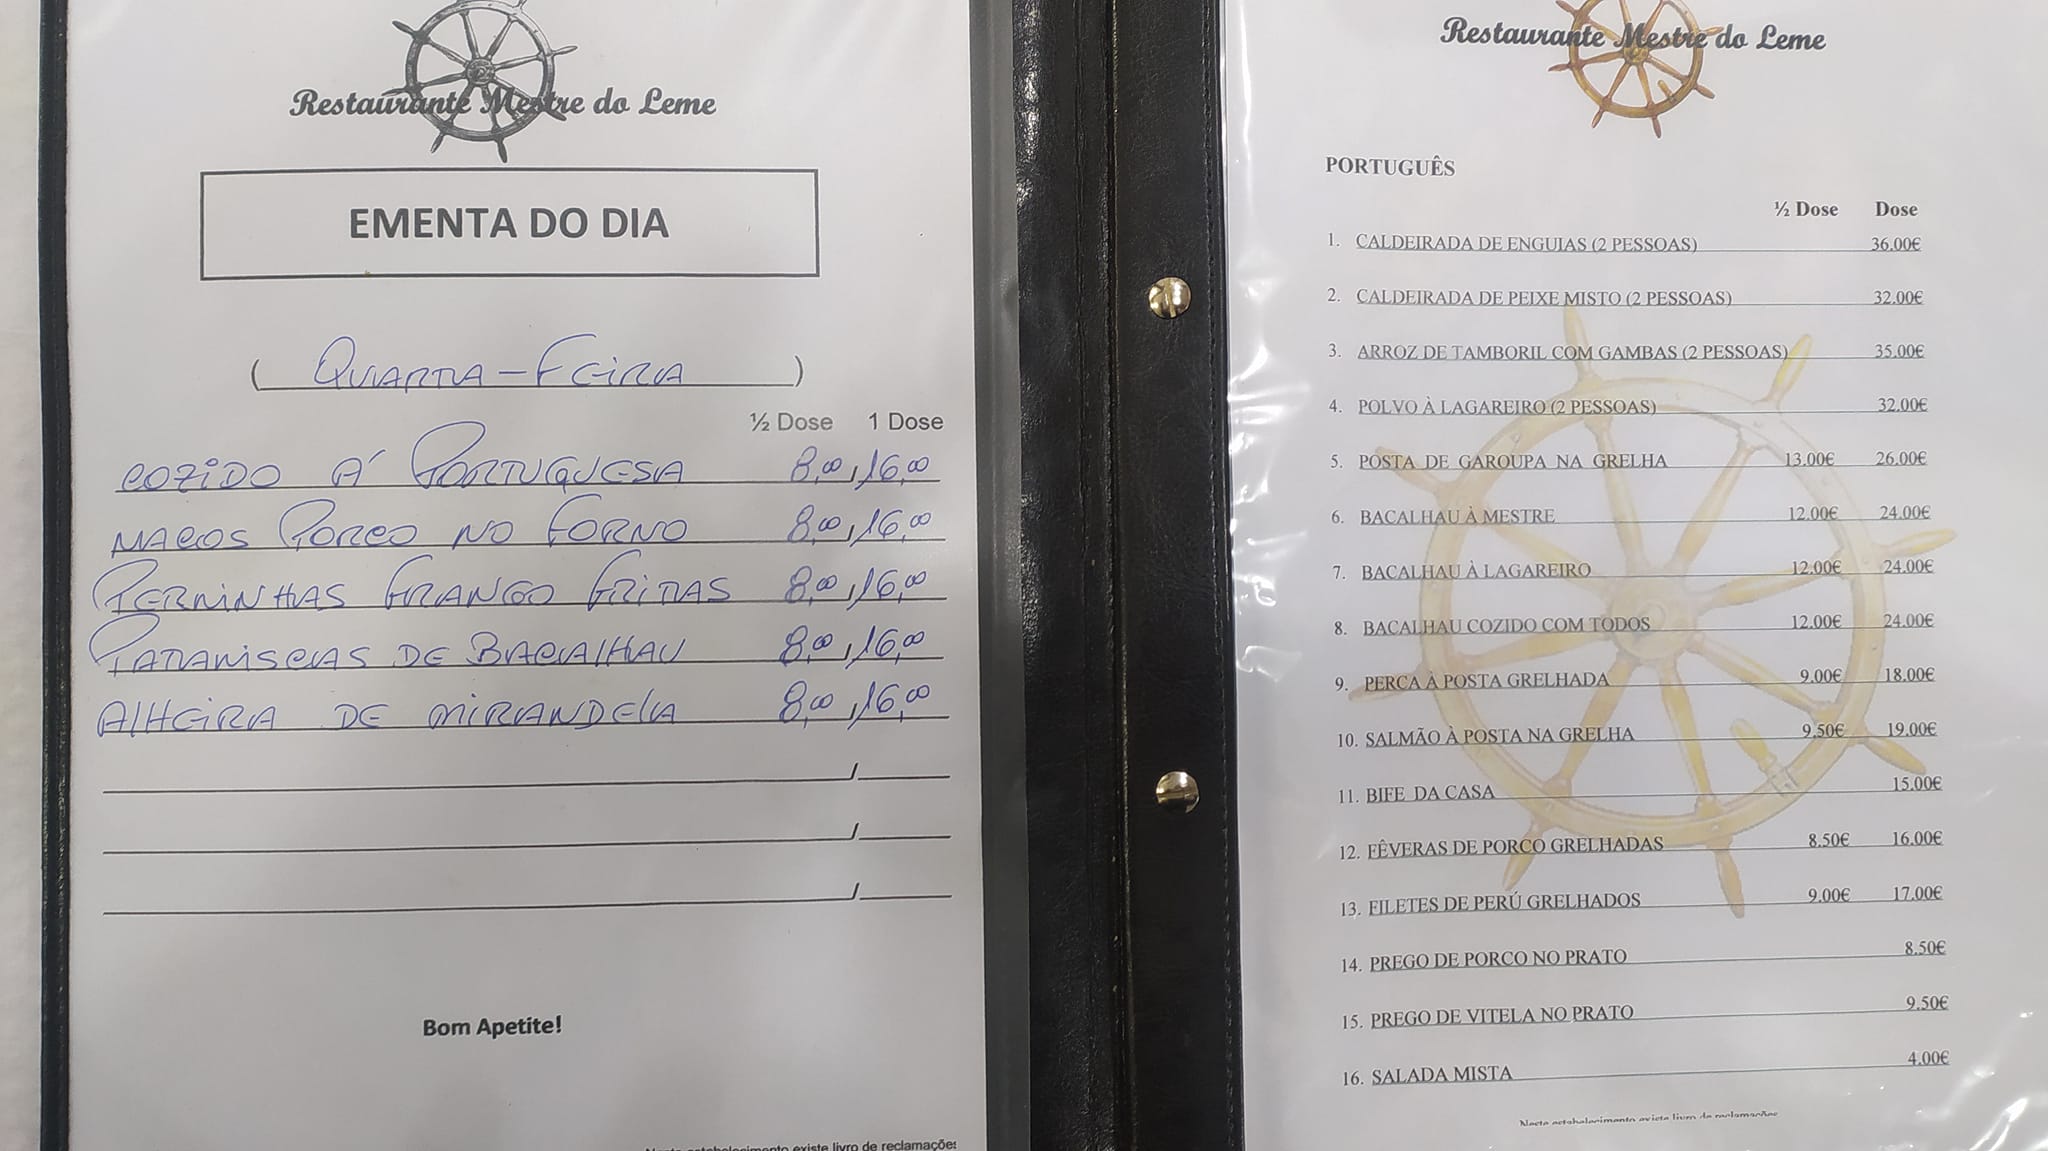 Restaurante Mestre do Leme
EMENTA DO DIA
( QUARTA-FEIRA )
½ Dose 1 Dose
COZIDO Á PORTUGUESA 8,00 / 16,00
NACOS PORCO NO FORNO 8,00 / 16,00
PERNINHAS FRANGO FRITAS 8,00 / 16,00
PATANISCAS DE BACALHAU 8,00 / 16,00
ALHEIRA DE MIRANDELA 8,00 / 16,00
Bom Apetite!
Neste estabelecimento existe livro de reclamações
Restaurante Mestre do Leme
PORTUGUÊS
½ Dose Dose
1. CALDEIRADA DE ENGUIAS (2 PESSOAS) 36.00€
2. CALDEIRADA DE PEIXE MISTO (2 PESSOAS) 32.00€
3. ARROZ DE TAMBORIL COM GAMBAS (2 PESSOAS) 35.00€
4. POLVO À LAGAREIRO (2 PESSOAS) 32.00€
5. POSTA DE GAROUPA NA GRELHA 13.00€ 26.00€
6. BACALHAU À MESTRE 12.00€ 24.00€
7. BACALHAU À LAGAREIRO 12.00€ 24.00€
8. BACALHAU COZIDO COM TODOS 12.00€ 24.00€
9. PERCA À POSTA GRELHADA 9.00€ 18.00€
10. SALMÃO À POSTA NA GRELHA 9.50€ 19.00€
11. BIFE DA CASA 15.00€
12. FÊVERAS DE PORCO GRELHADAS 8.50€ 16.00€
13. FILETES DE PERÚ GRELHADOS 9.00€ 17.00€
14. PREGO DE PORCO NO PRATO 8.50€
15. PREGO DE VITELA NO PRATO 9.50€
16. SALADA MISTA 4.00€
Neste estabelecimento existe livro de reclamações